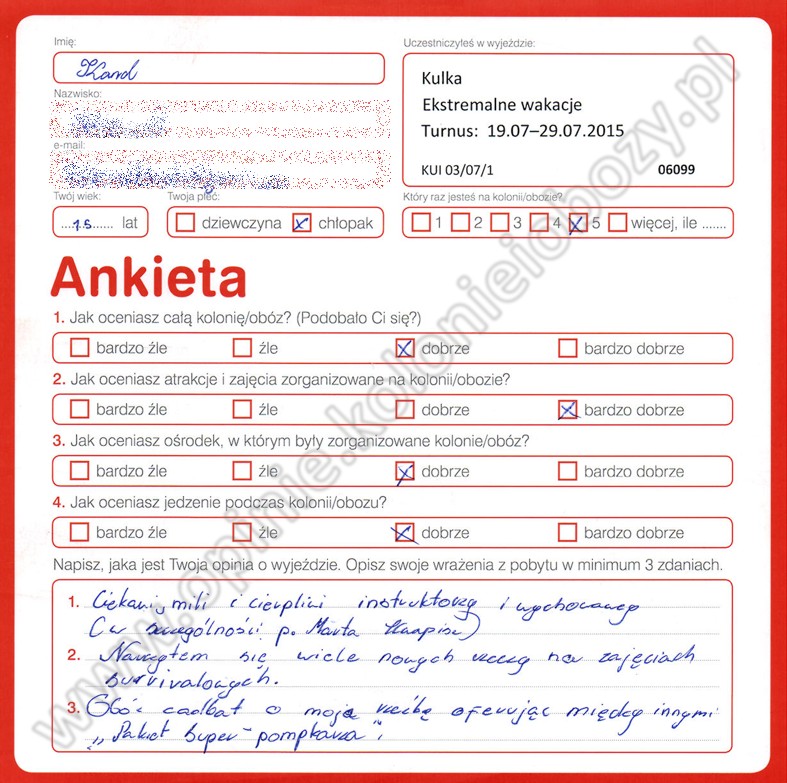 Imię:
Karol
Uczestniczyłeś w wyjeździe:
Kulka
Ekstremalne wakacje
Turnus: 19.07–29.07.2015
KUI 03/07/1 06099
Nazwisko:
e-mail:
Twój wiek:
15 lat
Twoja płeć:
dziewczyna chłopak
Który raz jesteś na kolonii/obozie?
1 2 3 4 5 więcej, ile .......
Ankieta
1. Jak oceniasz całą kolonię/obóz? (Podobało Ci się?)
bardzo źle źle dobrze bardzo dobrze
2. Jak oceniasz atrakcje i zajęcia zorganizowane na kolonii/obozie?
bardzo źle źle dobrze bardzo dobrze
3. Jak oceniasz ośrodek, w którym były zorganizowane kolonie/obóz?
bardzo źle źle dobrze bardzo dobrze
4. Jak oceniasz jedzenie podczas kolonii/obozu?
bardzo źle źle dobrze bardzo dobrze
Napisz, jaka jest Twoja opinia o wyjeździe. Opisz swoje wrażenia z pobytu w minimum 3 zdaniach.
1. Ciekawi, mili i cierpliwi instruktorzy i wychowawcy
(w szczególności p. Marta
2. Nauczyłem się wiele nowych rzeczy na zajęciach
survivalowych.
3. Obóz zadbał o moją rzeźbę oferując między innymi
"Pakiet Super-pompkarza".
www.opinie.kolonieiobozy.pl